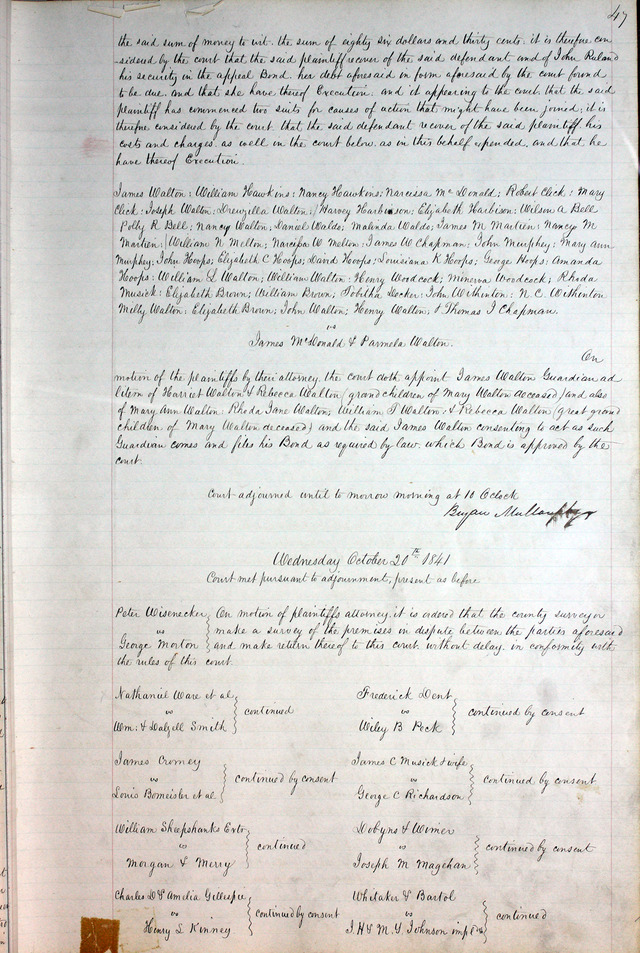 47
the said sum of money to wit. the sum of eighty six dollars and thirty cents. it is therefore con
sidered by the court that the said plaintiff recover of the said defendant and of John Ruland
his security in the appeal Bond. her debt aforesaid in form aforesaid by the court found
to be due. and that she have thereof Execution. and it appearing to the court. that the said
plaintiff has commenced two suits for causes of action that might have been joined; it is
therefore considered by the court. that the said defendant recover of the said plaintiff his
costs and charges. as well in the court below. as in this behalf expended. and that he
have thereof Execution.
James Walton: William Hawkins: Nancy Hawkins; Narcissa Mc Donald; Robert Click: Mary
Click: Joseph Walton: Drewzilla Walton: Harvey Harbison; Elizabeth Harbison; Wilson A Bell
Polly R Bell; Nancy Walton; Daniel Waldo; Malinda Waldo; James M Martien: Nancy M
Martien: William N Melton; Narcissa W Melton: James W Chapman; John Murphey; Mary ann
Murphey; John Hoops; Elizabeth C Hoops; David Hoops; Louisiana K Hoops; George Hoops; Amanda
Hoops: William L Walton; William Walton: Henry Woodcock; Minerva Woodcock; Rhoda
Musick: Elizabeth Brown; William Brown; Tobitha Locker: John Withinton: N. C. Withinton
Milly Walton: Elizabeth Brown; John Walton; Henry Walton; & Thomas T Chapman.
vs
James McDonald & Parmela Walton.
On
motion of the plaintiffs by their attorney. the court doth appoint James Walton Guardian ad
litem of Harriet Walton & Rebecca Walton (grand children of Mary Walton deceased) and also
of Mary Ann Walton. Rhoda Jane Walton; William T Walton: & Rebecca Walton (great grand
children of Mary Walton deceased) and the said James Walton consenting to act as such
Guardian comes and files his Bond as required by law. which Bond is approved by the
court.
Court adjourned until to morrow morning at 10 Oclock
Bryan Mullanphy
Wednesday October 20th 1841
Court met pursuant to adjournment, present as before
Peter Wisenecker
vs
George Morton
On motion of plaintiffs attorney. it is ordered that the county surveyor
make a survey of the premises in dispute between the parties aforesaid
and make return thereof to this court. without delay. in conformity with
the rules of this court.
Nathaniel Ware et al
vs
Wm: & Dalzell Smith
continued
Frederick Dent
vs
Wiley B Peck
continued by consent
James Cromey
vs
Louis Bomeisler et al
continued by consent
James C Musick & wife
vs
George C Richardson
continued by consent
William Sheepshanks Extr
vs
Morgan & Merry
continued
Dobyns & Wimer
vs
Joseph M Magehan
continued by consent
Charles D & Amelia Gillespie
vs
Henry L Kinney
continued by consent
Whitaker & Bartol
vs
J. H & M. Y Johnson impld
continued